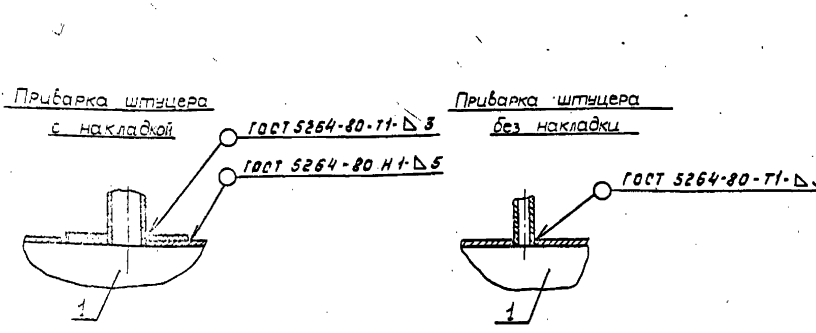 Приварка штуцера
с накладкой
ГОСТ 5264-80-Т1-◺ 3
ГОСТ 5264-80 Н1-◺ 5
1
Приварка штуцера
без накладки
ГОСТ 5264-80-Т1-◺
1